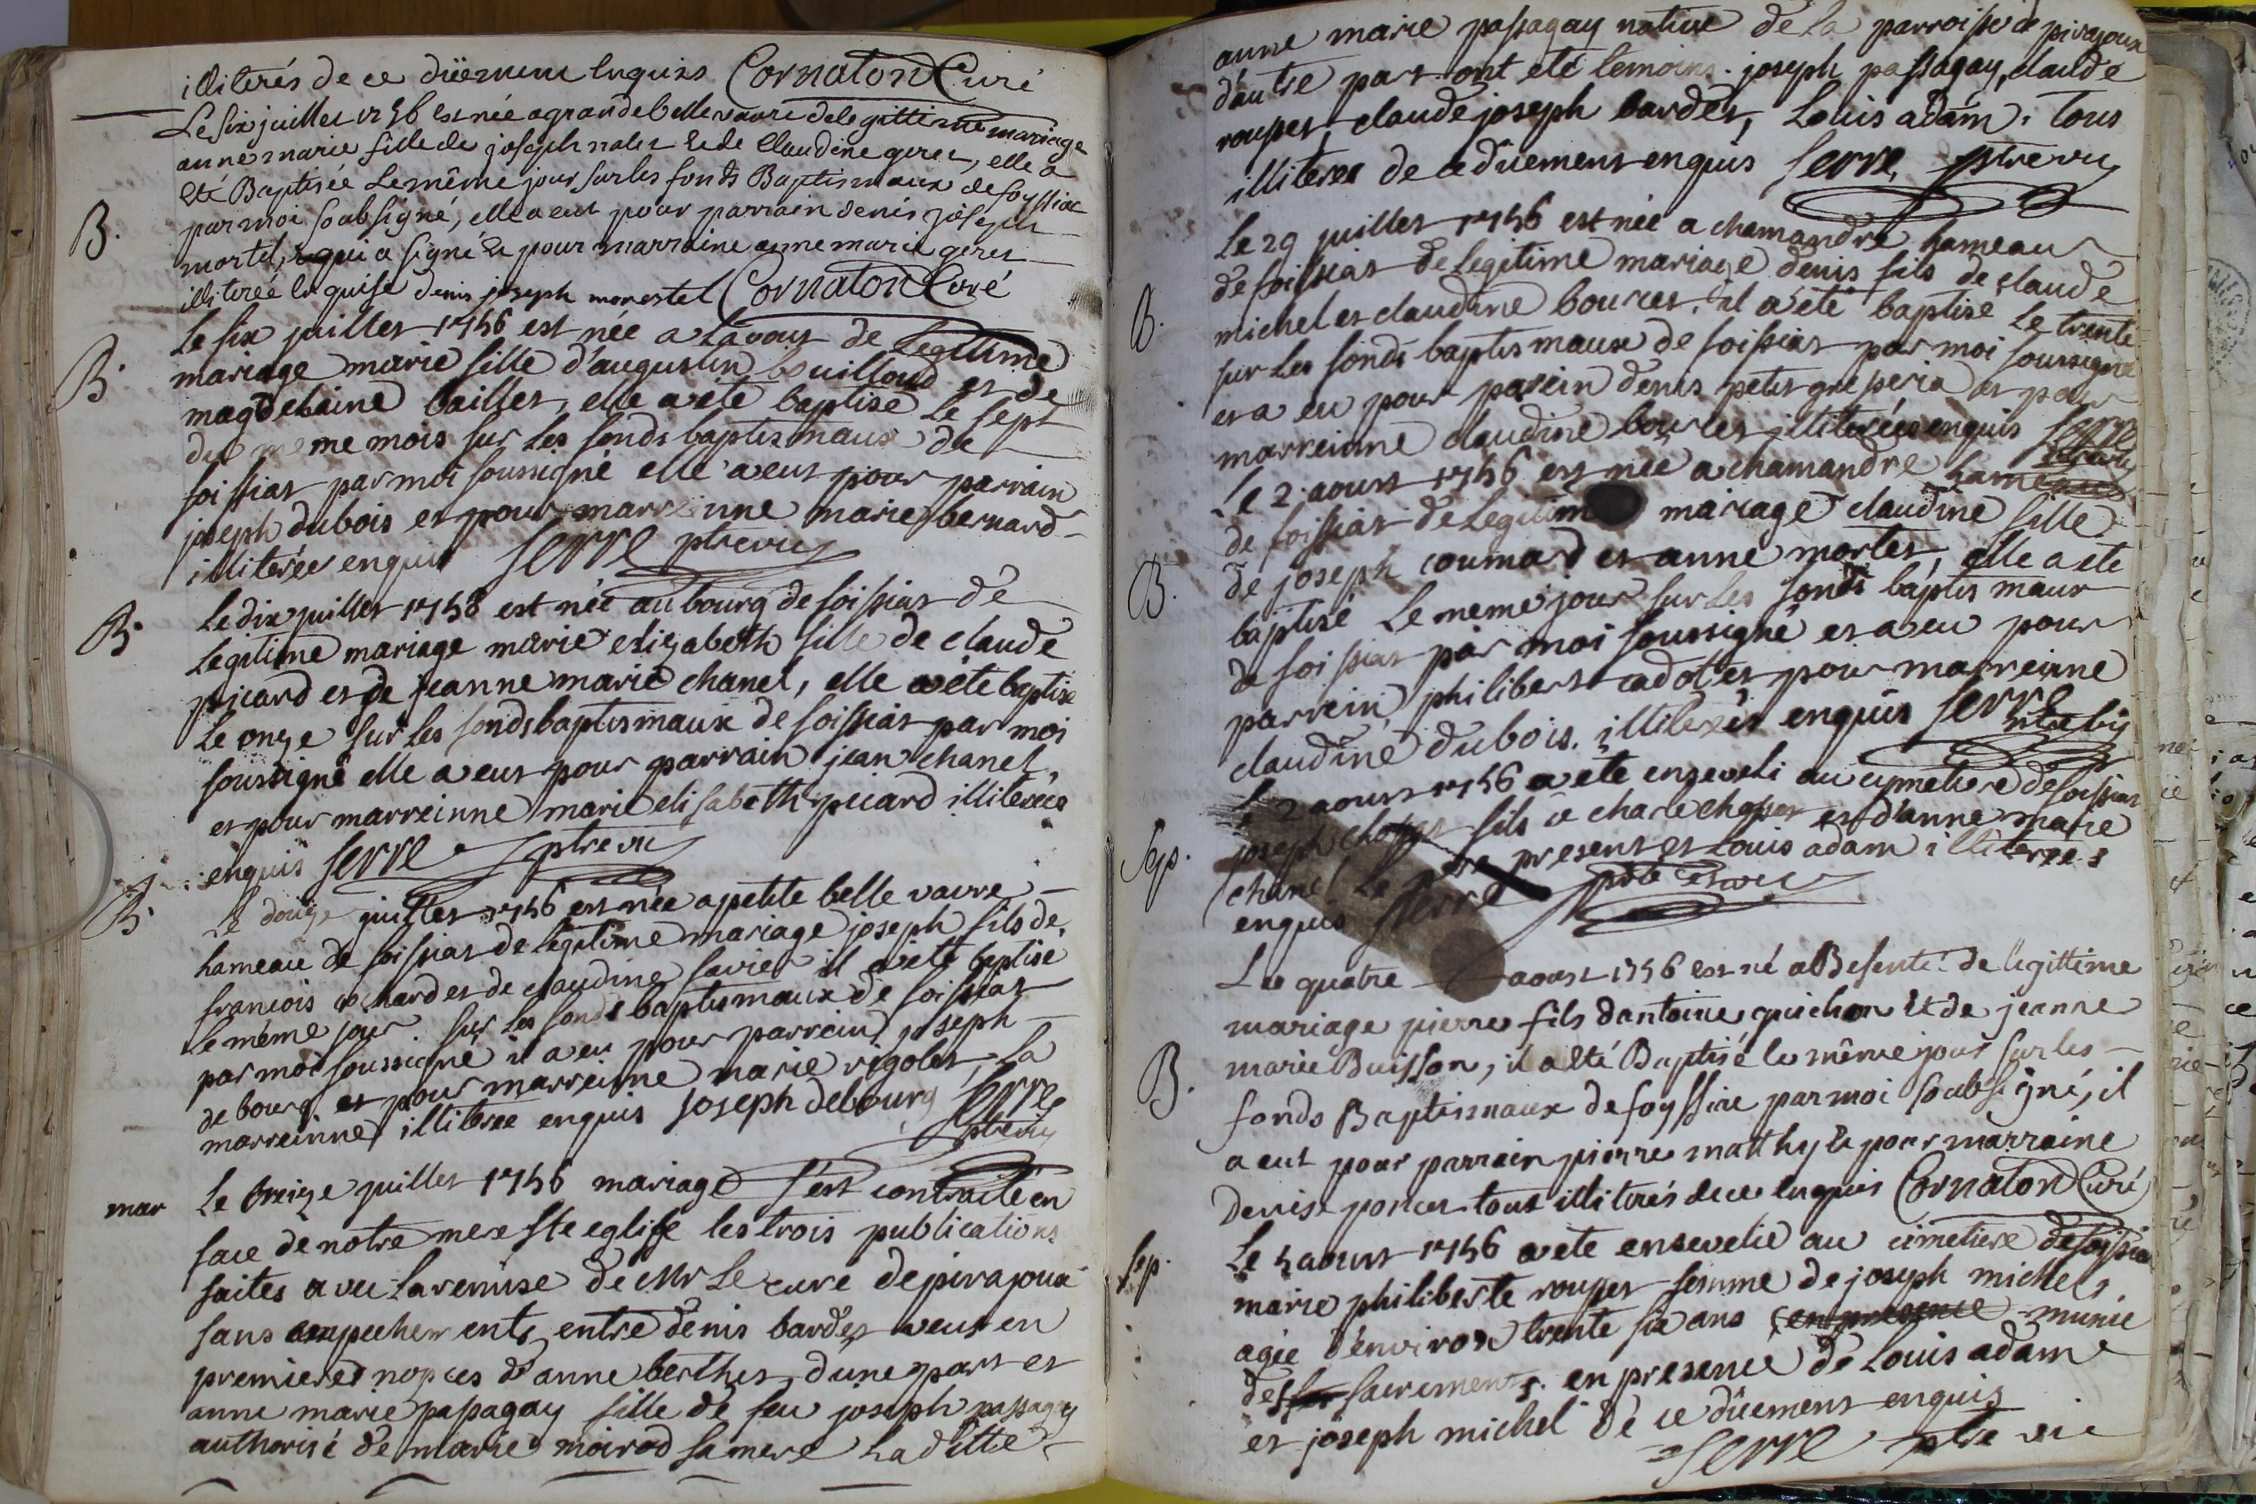 illiterés de ce düement enquis Cornaton Curé
Le six juillet 1756 est née a grande belle vavre de legittime mariage
anne marie fille de joseph nalet & de Claudine geret, elle a
été Baptisée le même jour sur les fonds Baptismaux de foyssiac
par moi soubsigné, elle a eut pour parrain denis joseph
B.
mortel, qui a signé & pour marraine anne marie geret
illiterée enquise denis joseph monestel Cornaton Curé
Le six juillet 1756 est née a lavour de Legitime
B.
mariage marie fille d'augustin bouilloud et de
magdelaine baillet, elle a été baptisé le sept
du meme mois sur les fonds baptismaux de
foissiat par moi soussigné elle a eut pour parrain
joseph dubois et pour marreinne marie bernard
illiterée enquis Serre ptre vic
Le dix juillet 1756 est née au bourg de foissiat de
B.
Legitime mariage marie elizabeth fille de claude
picard et de jeanne marie chanel, elle a été baptisé
le onze sur les fonds baptismaux de foissiat par moi
soussigné elle a eut pour parrain jean chanel,
et pour marreinne marie elisabeth picard illiterées
enquis Serre ptre vic
B.
Le douze juillet 1756 est née a petite belle vavre
hameau de foissiat de legitime mariage joseph fils de
francois et de claudine il a été baptisé
le même jour sur les fonds baptismaux de foissiat
par moi soussigné il a eu pour parrein joseph
de bourg et pour marreinne marie rigolet, la
marreinne illiteree enquis joseph debourg Serre
ptre vic
mar Le treize juillet 1756 mariage s'est contracté en
face de notre mere Ste eglise les trois publications
faites avec la remise de Mr Le curé de pirajoux
sans empechements entre denis bardet veuf en
premieres nopces d'anne berthet d'une part et
anne marie passagay fille de feu joseph passagay
authorisé de marie moirod sa mere la ditte
anne marie passagay native de la parroisse de pirajoux
d'autre part ont eté temoins joseph passagay, claude
roupet, claude joseph bardet, Louis adam. tous
illiteres de ce düement enquis Serre, ptre vic
Le 29 juillet 1756 est née a chamandre hameau
de foissiat de Legitime mariage denis fils de claude
B.
michel et claudine bouret. il a été baptisé le trente
sur les fonds baptismaux de foissiat par moi soussigné
et a eu pour parein denis petit et pour
marreinne claudine bouret illiterées enquis Serre
ptre vic
Le 2 aoust 1756 est née a chamandre hameau
de foissiat de Legitime mariage claudine fille
B.
de joseph coumard et anne mortel, elle a ete
baptisé le meme jour sur les fonds baptismaux
de foissiat par moi soussigné et a eu pour
parrein philibert cadot et pour marreinne
claudine dubois. illiterés enquis Serre
ptre vic
Le 2 aoust 1756 a ete enseveli au cymetiere de foissiat
Sep.
joseph fils de et d'anne marie
chanel le pere present et Louis adam illiterees
enquis Serre ptre et vic
Le quatre aoust 1756 est né a Besente de legittime
mariage pierre fils d'antoine guichon & de jeanne
marie Buisson, il a été Baptisé le même jour sur les
B.
fonds Baptismaux de foyssiac par moi soubsigné, il
a eut pour parrain pierre matthy & pour marraine
denise poncet tous illiterés de ce enquis Cornaton Curé
Sep.
Le 5 aoust 1756 a ete ensevelie au cimetiere de foissiat
marie philiberte roupet femme de joseph michel,
agée d'environ trente six ans en presence munie
des sacrements. en presence de Louis adam
et joseph michel de ce düement enquis
Serre ptre vic